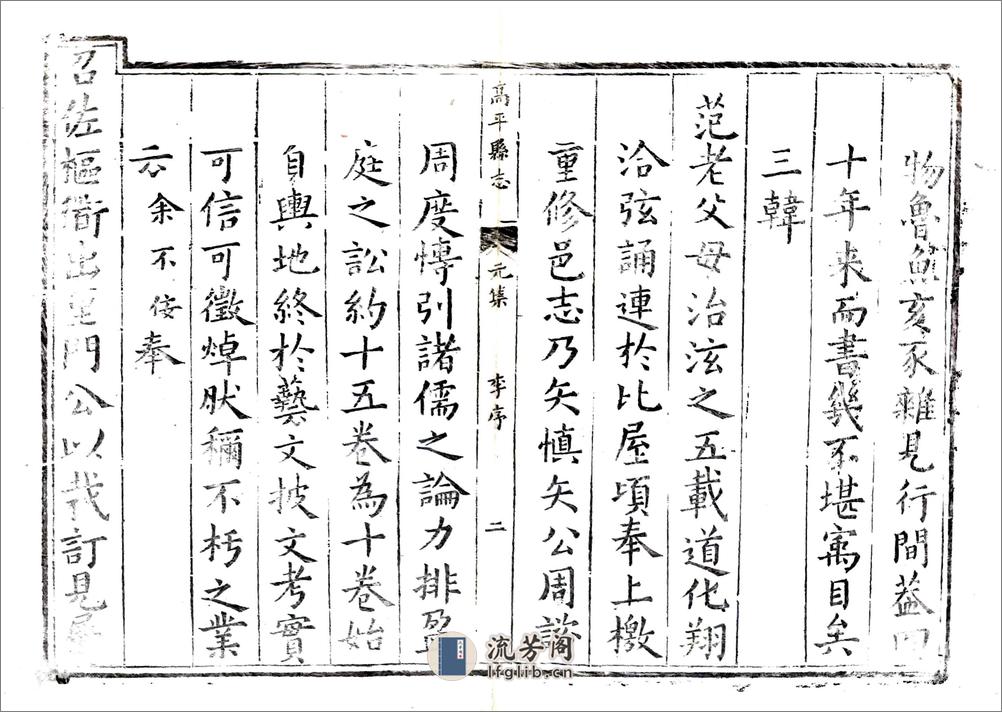 物魯魚亥豕雜見行間葢四
十年来而書幾不堪寓目矣
三韓
范老父母治泫之五載道化翔
洽弦誦連於比屋頃奉上檄
重修邑志乃矢慎矢公周諮
高平縣志 元集 李序 二
周度愽引諸儒之論力排盈
庭之訟約十五卷為十卷始
自輿地終於藝文披文考實
可信可徵焯肰稱不朽之業
云余不佞奉
召佐樞衙出里門公以剞訂見
流芳阁
lfglib.cn